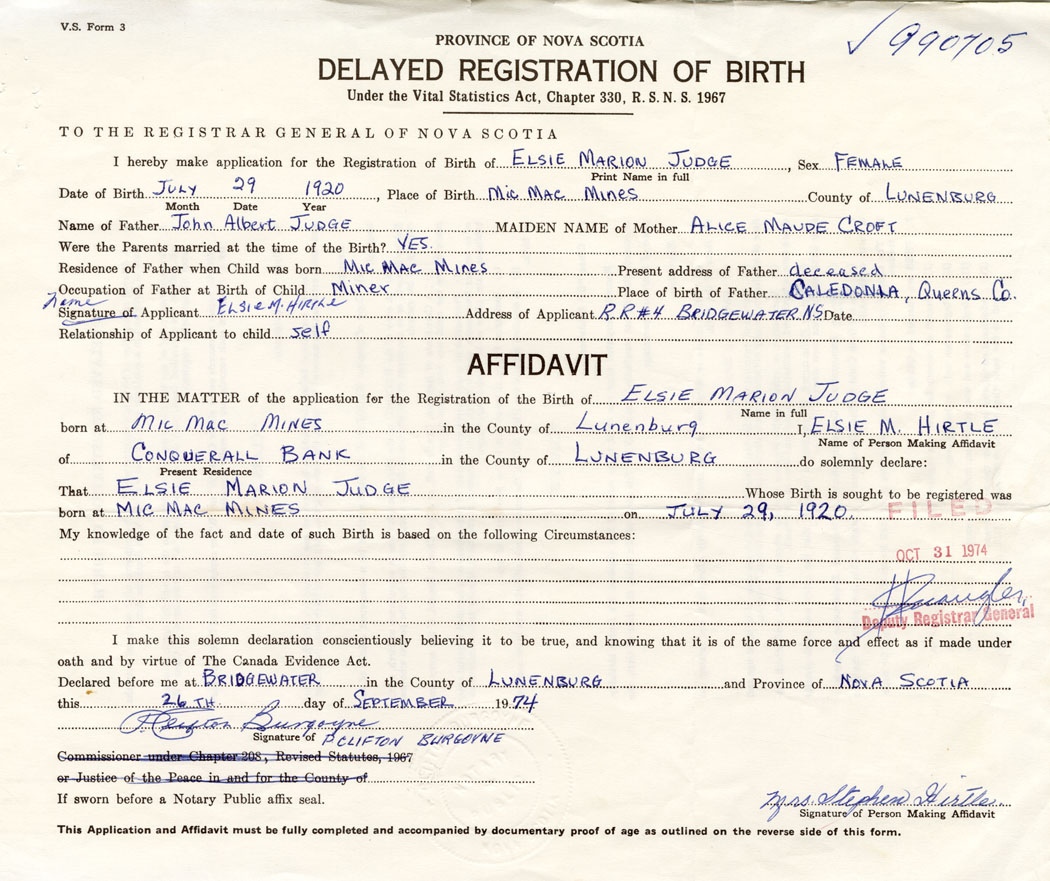 V.S. Form 3
✓ 990705
PROVINCE OF NOVA SCOTIA
DELAYED REGISTRATION OF BIRTH
Under the Vital Statistics Act, Chapter 330, R. S. N. S. 1967
TO THE REGISTRAR GENERAL OF NOVA SCOTIA
I hereby make application for the Registration of Birth of ELSIE MARION JUDGE, Sex FEMALE
Print Name in full
Date of Birth JULY 29 1920, Place of Birth MIC MAC MINES County of LUNENBURG
Month Date Year
Name of Father John Albert JUDGE MAIDEN NAME of Mother ALICE MAUDE CROFT
Were the Parents married at the time of the Birth? YES.
Residence of Father when Child was born MIC MAC MINES Present address of Father deceased
Occupation of Father at Birth of Child Miner Place of birth of Father CALEDONIA, QUEENS CO.
Name
Signature of Applicant ELSIE M. HIRTLE Address of Applicant R R #4 BRIDGEWATER NS Date
Relationship of Applicant to child self
AFFIDAVIT
IN THE MATTER of the application for the Registration of the Birth of ELSIE MARION JUDGE
Name in full
born at MIC MAC MINES in the County of Lunenburg I, ELSIE M. HIRTLE
Name of Person Making Affidavit
of CONQUERALL BANK in the County of LUNENBURG do solemnly declare:
Present Residence
That ELSIE MARION JUDGE Whose Birth is sought to be registered was
born at MIC MAC MINES on JULY 29, 1920.
FILED
My knowledge of the fact and date of such Birth is based on the following Circumstances:
OCT 31 1974
Deputy Registrar General
I make this solemn declaration conscientiously believing it to be true, and knowing that it is of the same force and effect as if made under
oath and by virtue of The Canada Evidence Act.
Declared before me at BRIDGEWATER in the County of LUNENBURG and Province of NOVA SCOTIA
this 26TH day of SEPTEMBER 1974
P Clifton Burgoyne
Signature of P. CLIFTON BURGOYNE
Commissioner under Chapter 208, Revised Statutes, 1967
or Justice of the Peace in and for the County of
If sworn before a Notary Public affix seal.
Mrs. Stephen Hirtle
Signature of Person Making Affidavit
This Application and Affidavit must be fully completed and accompanied by documentary proof of age as outlined on the reverse side of this form.